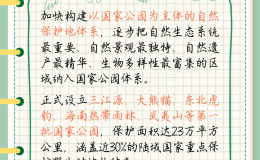 加快构建以国家公园为主体的自然
保护地体系，逐步把自然生态系统
最重要、自然景观最独特、自然遗
产最精华、生物多样性最富集的区
域纳入国家公园体系。
正式设立三江源、大熊猫、东北虎
豹、海南热带雨林、武夷山等第一
批国家公园，保护面积达23万平方
公里，涵盖近30%的陆域国家重点保